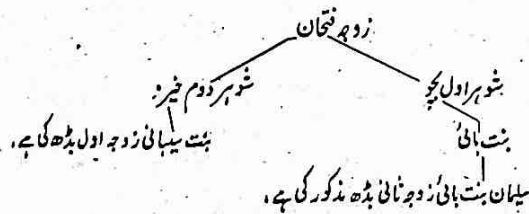 زوجہ فتحان
شوہر اول بچو
شوہر دوم خیرو
بنت بائی
بنت سیبائی زوجہ اول بڈھ کی ہے،
سلمان بنت بائی زوجہ ثانی بڈھ مذکور کی ہے،